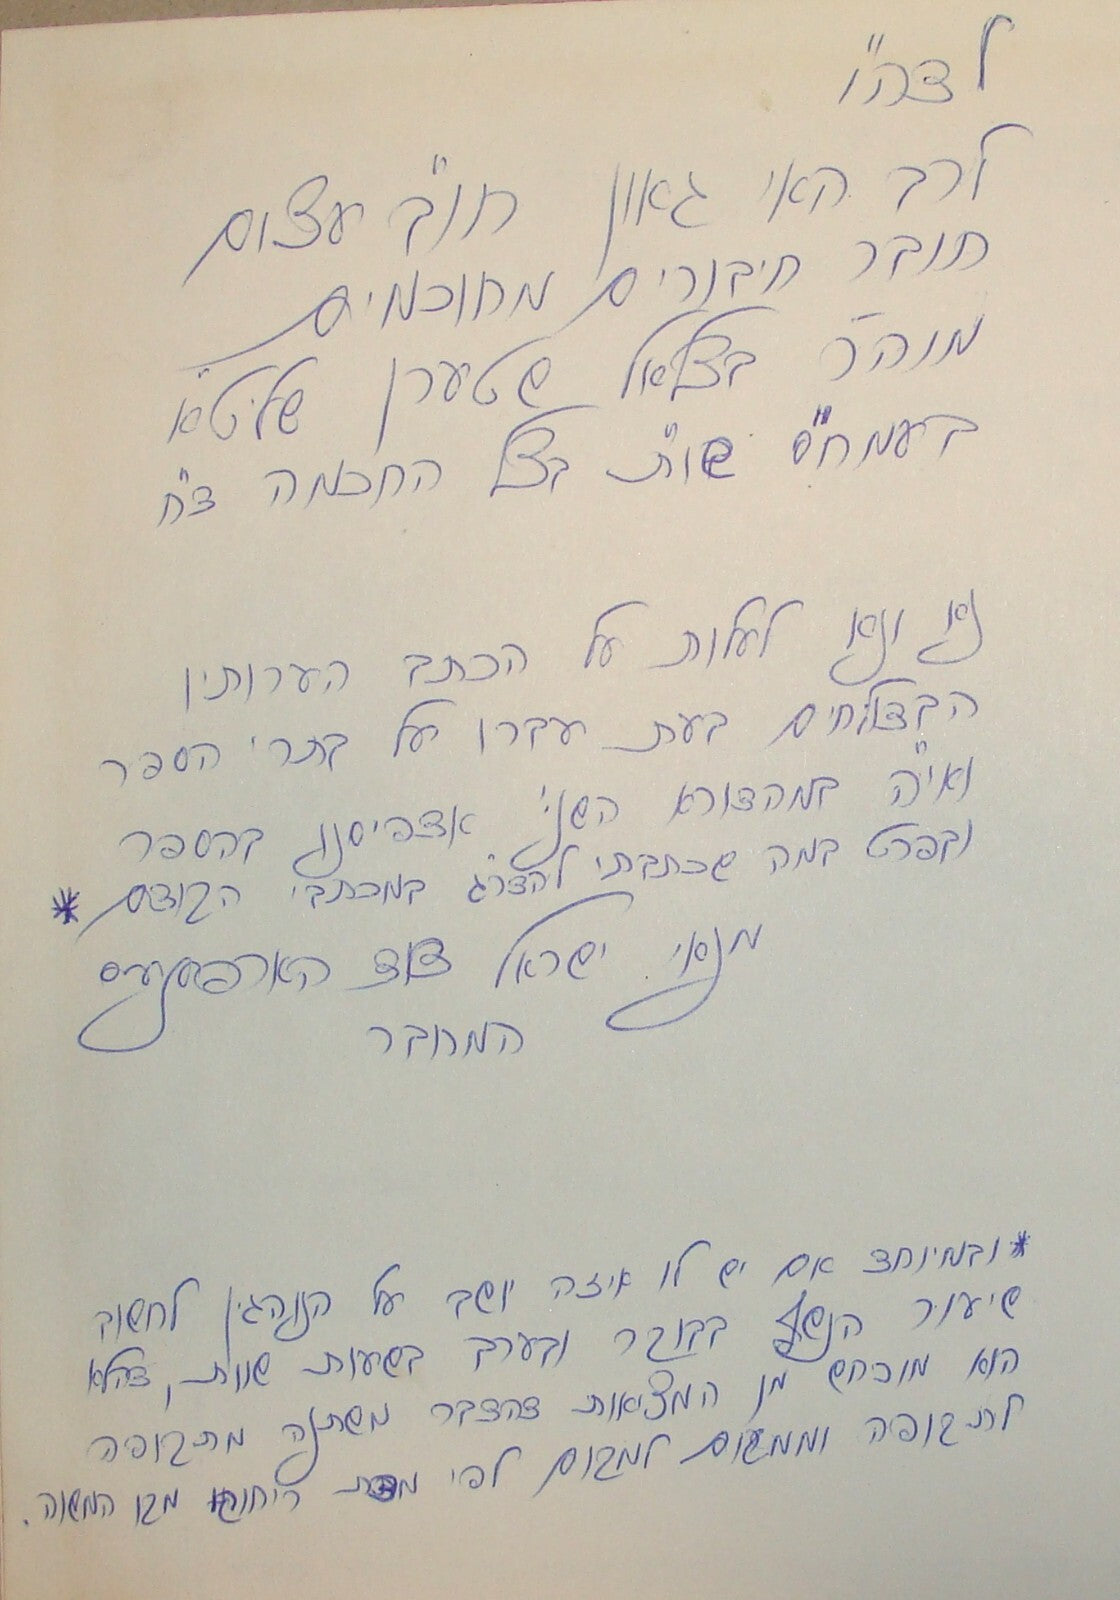 לצה"ו
לרב האי גאון חו"ב עצום
חובר חיבורים מחוכמים
מוהר"ר בצלאל שטערן שליט"א
בעמח"ס שו"ת בצל החכמה ד"ח
נא ונא לעלות על הכתב הערותיו
בעת עברו על בתרי הספר
ואי"ה במהדורא השני' אדפיסנו בהספר
ובפרט במה שכתבתי במכתבי הקודם *
מנאי ישראל דוד הארפענעס
המחבר
* ובמיוחד אם יש לו איזה יושב על הנוהגין לחשוב
שיעור הנשף בבוקר ובערב בשעות שוות, דהלא
הוא מוכחש מן המציאות דהדבר משתנה מתקופה
לתקופה וממקום למקום לפי מדת ריחוקו מקו המשוה.